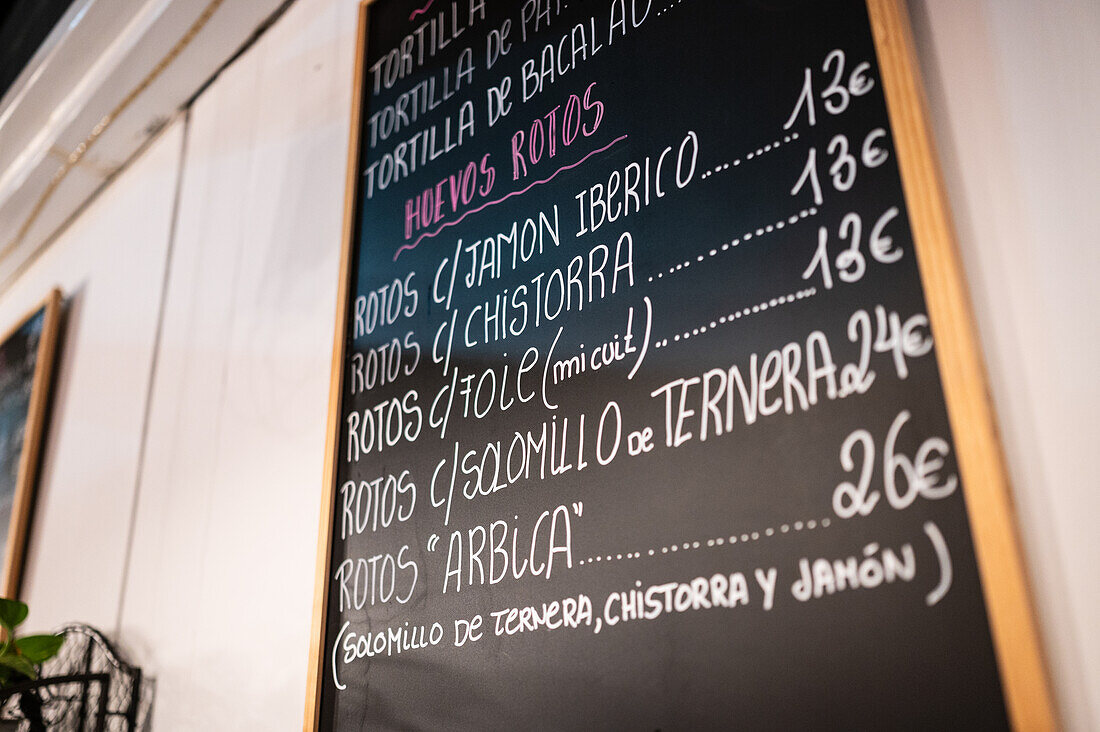 TORTILLA
TORTILLA DE
TORTILLA DE BACALAO....
HUEVOS ROTOS
ROTOS C/JAMON IBERICO......... 13€
ROTOS C/CHISTORRA .............. 13€
ROTOS C/FOIE (mi cuit)............... 13€
ROTOS C/SOLOMILLO DE TERNERA.. 24€
ROTOS "ARBICA"........................ 26€
(SOLOMILLO DE TERNERA, CHISTORRA Y JAMÓN)